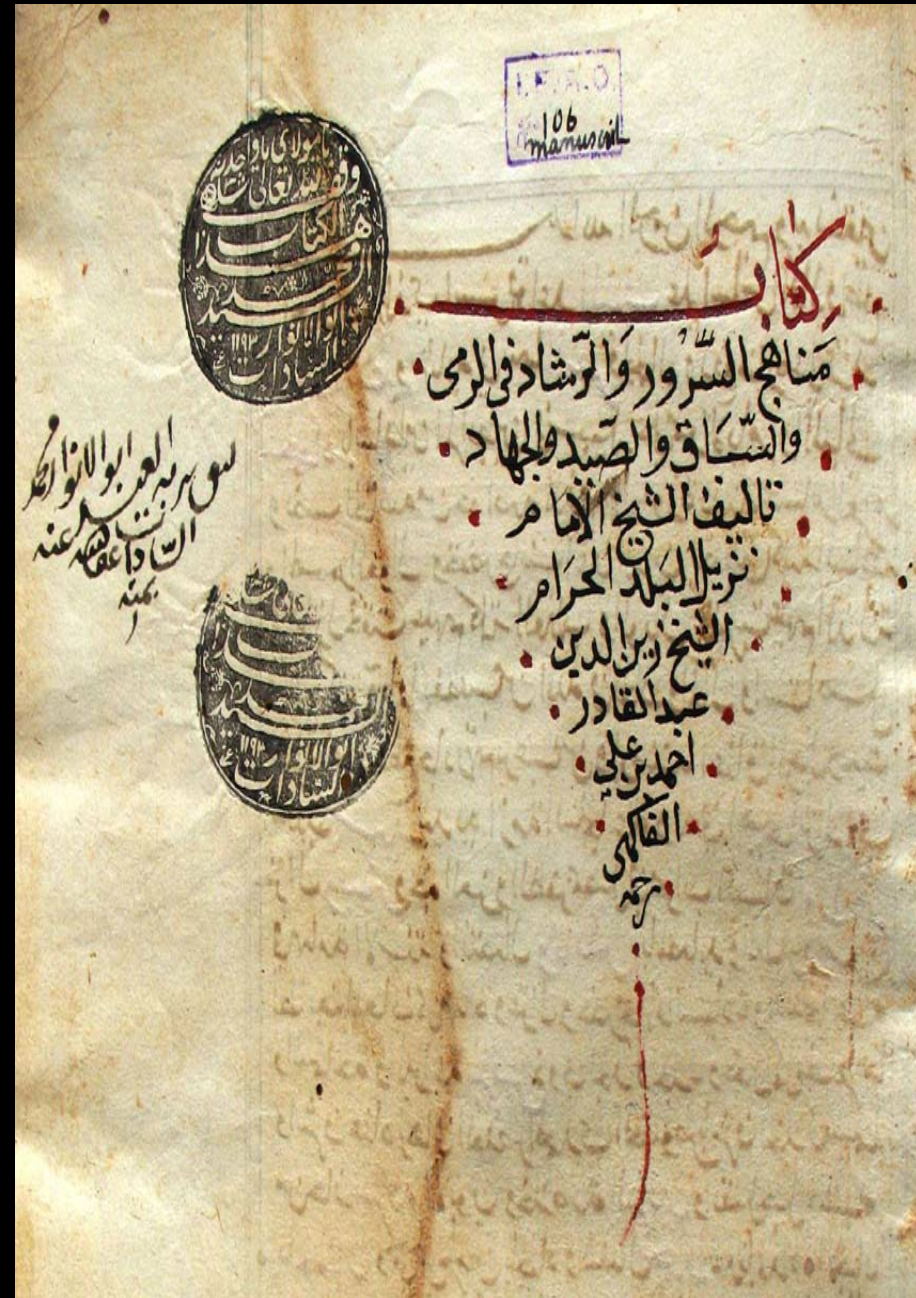 106
manuscrit
كتاب
مناهج السرور والرشاد في الرمى
والسباق والصيد والجهاد
تاليف الشيخ الامام
نزيل البلد الحرام
الشيخ زين الدين
عبد القادر
احمد بن علي
الفاكهى
رحمه
وقف لله تعالى
هذا الكتاب
ابو الانوار ١١٩٢
السادات
ابو الانوار محمد
السادات عفا الله عنه
بمنه
ابو الانوار ١١٩٢
السادات